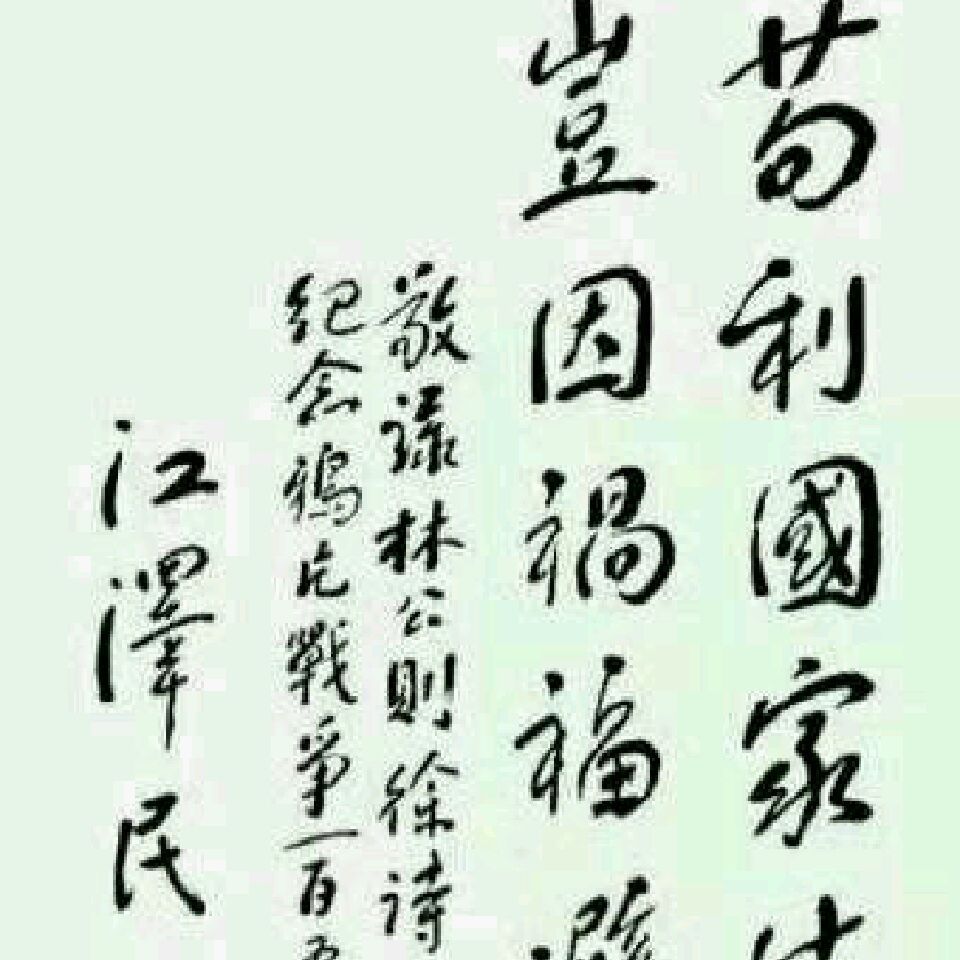 苟利國家生
豈因禍福避
敬録林公則徐詩
紀念鴉片戰爭一百五
江澤民